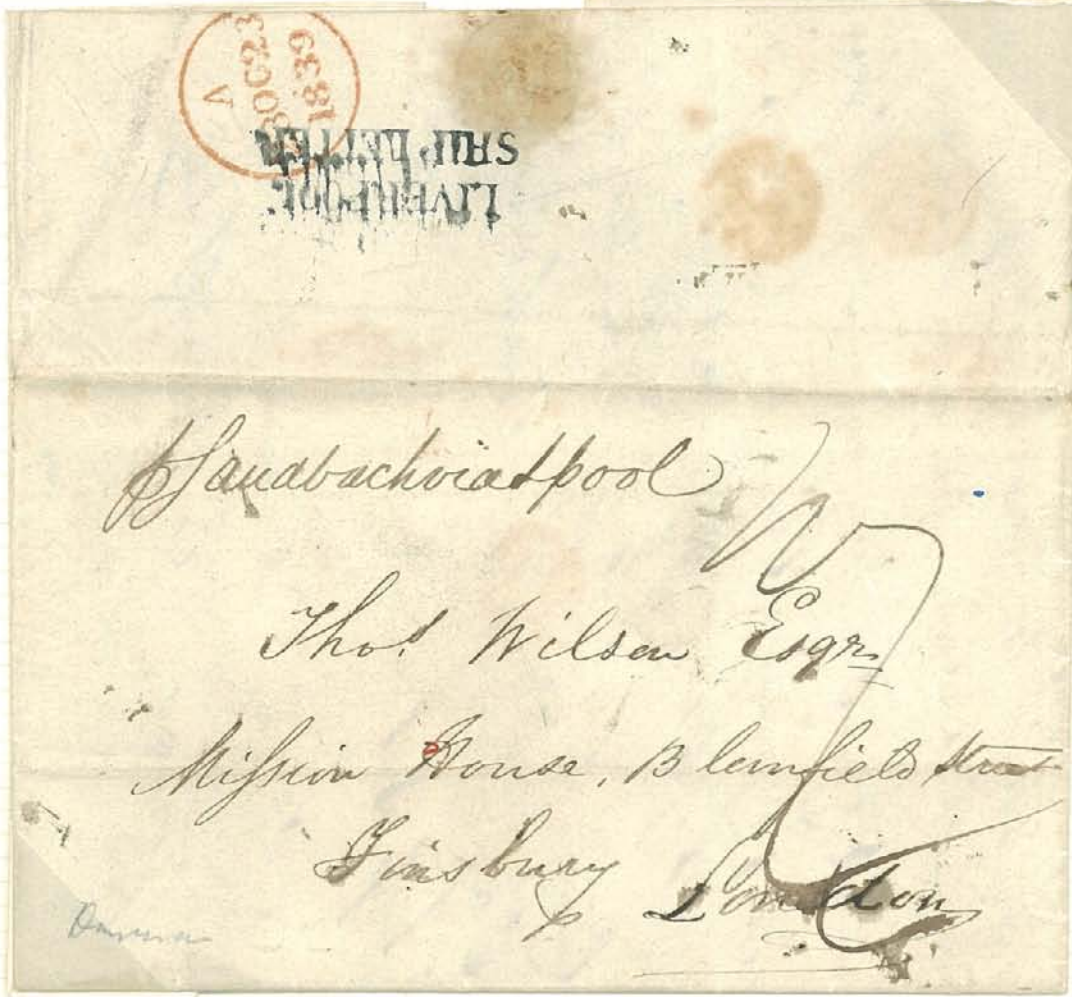 A
8OC23
1839
LIVERPOOL
SHIP LETTER
p Sandbach via Lpool
Thos. Wilson Esqr
Mission House, Blomfield Street
Finsbury London